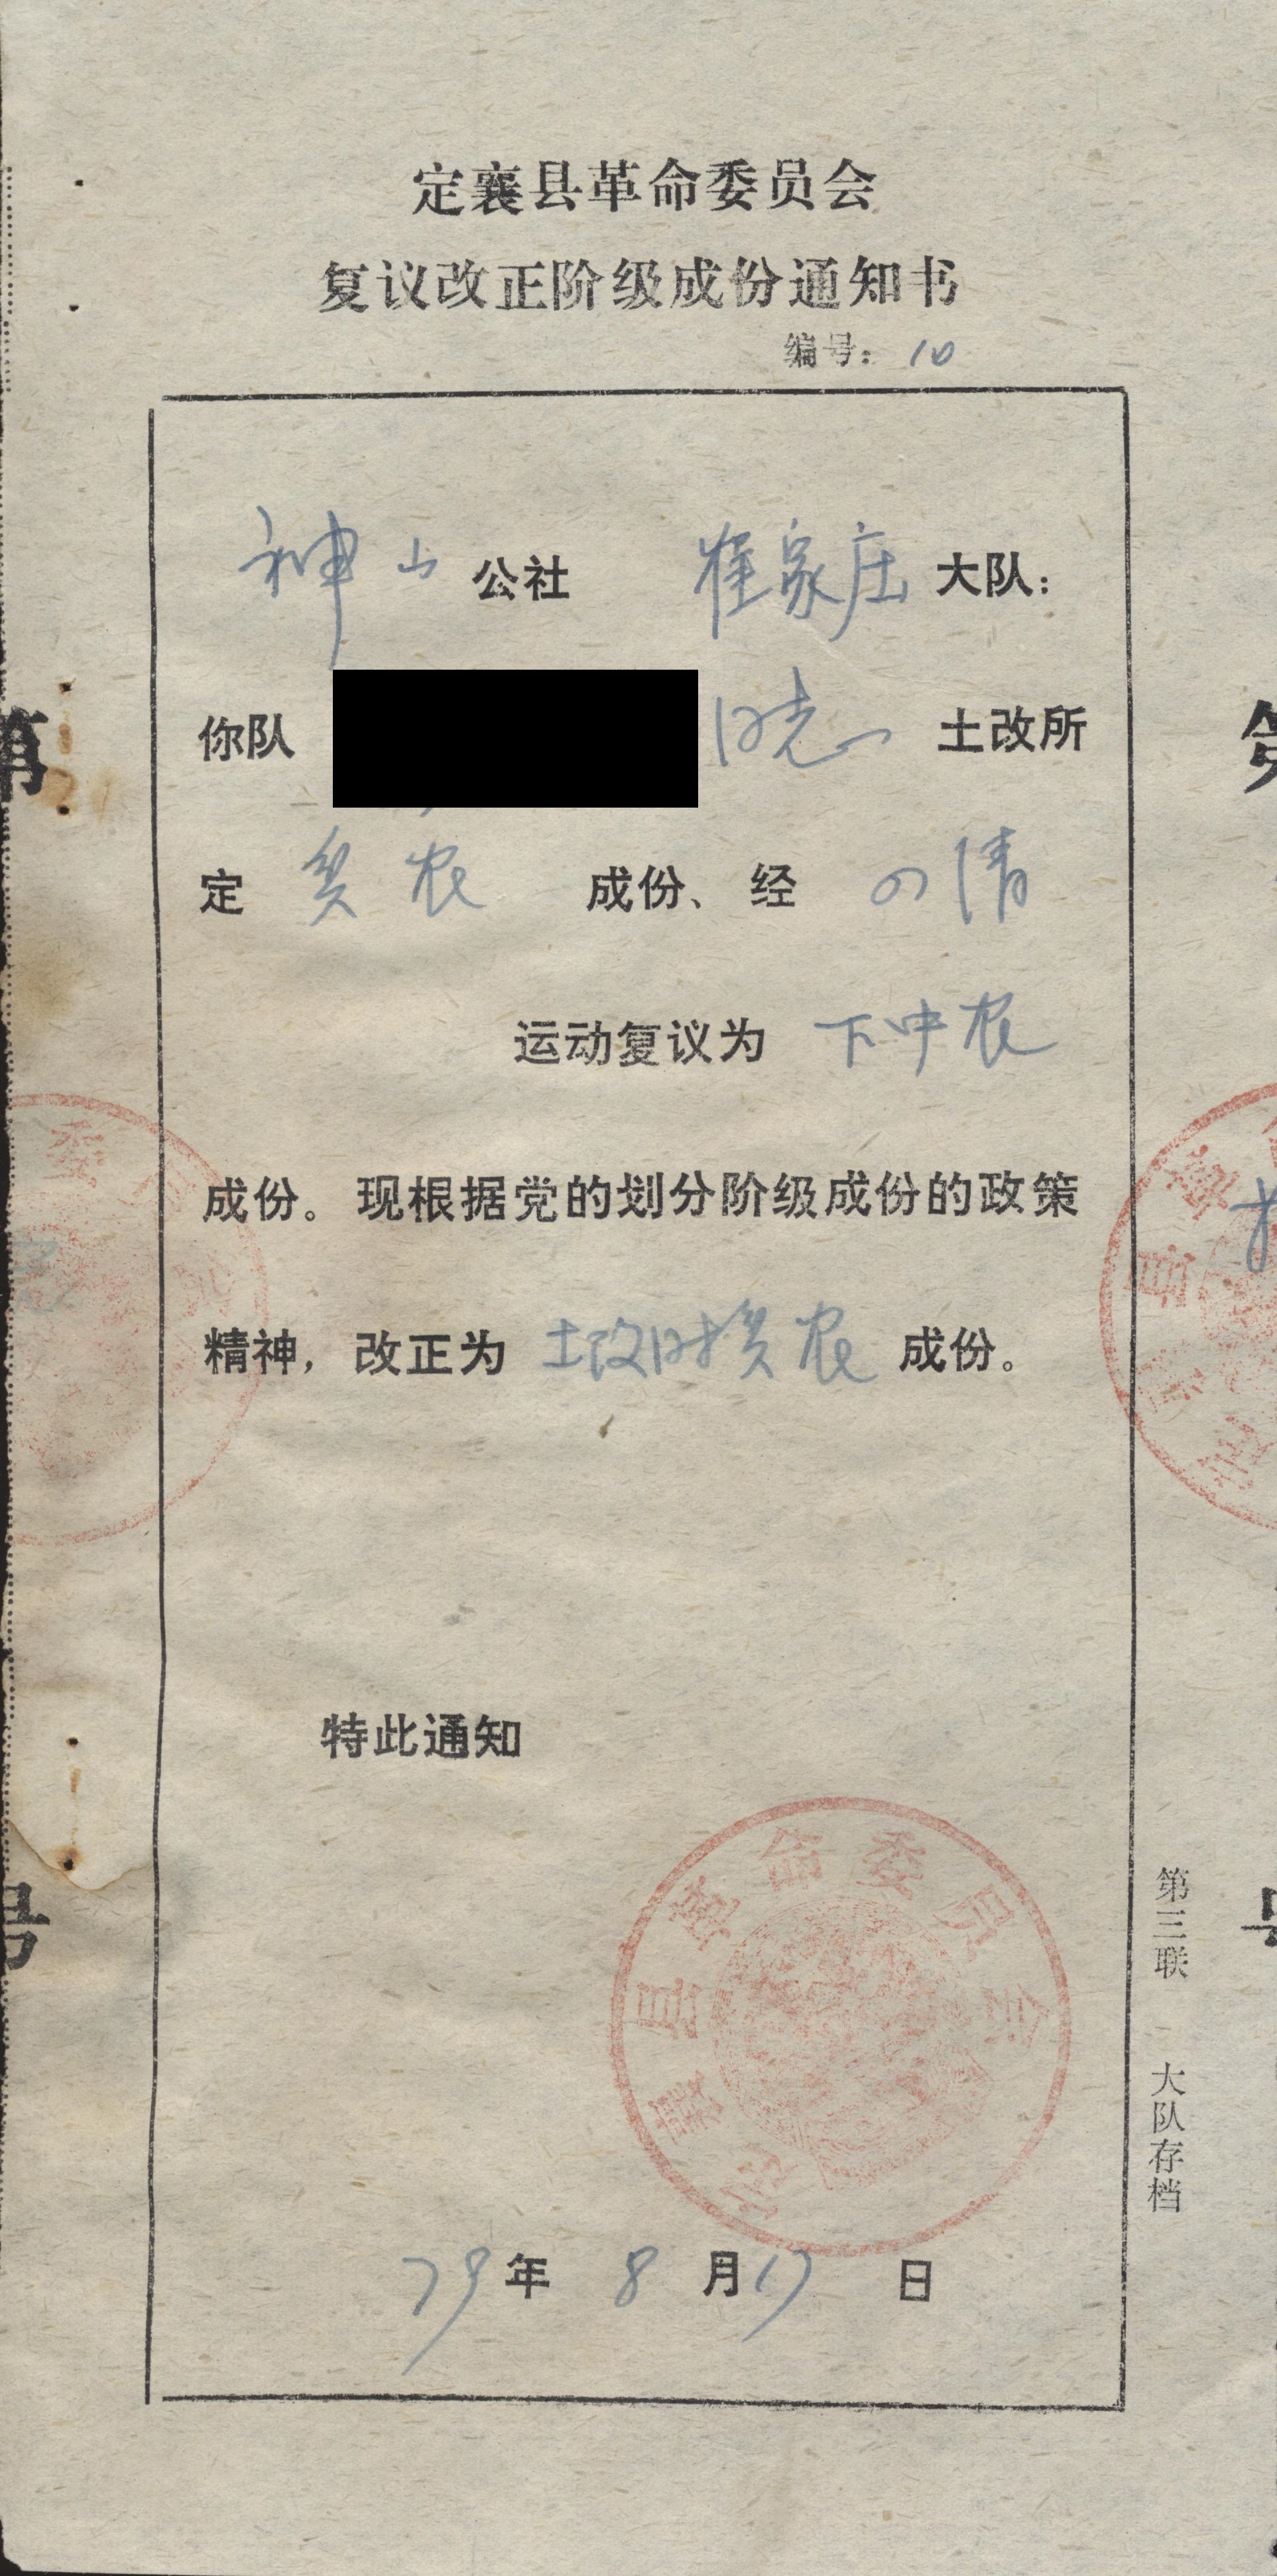 定襄县革命委员会
复议改正阶级成份通知书
编号：10
神山公社 崔家庄大队：
你队 土改所
定 贫农 成份、经 四清
运动复议为 下中农
成份。现根据党的划分阶级成份的政策
精神，改正为 土改时贫农 成份。
特此通知
定襄县革命委员会
79年 8月17日
第三联 大队存档
第
号